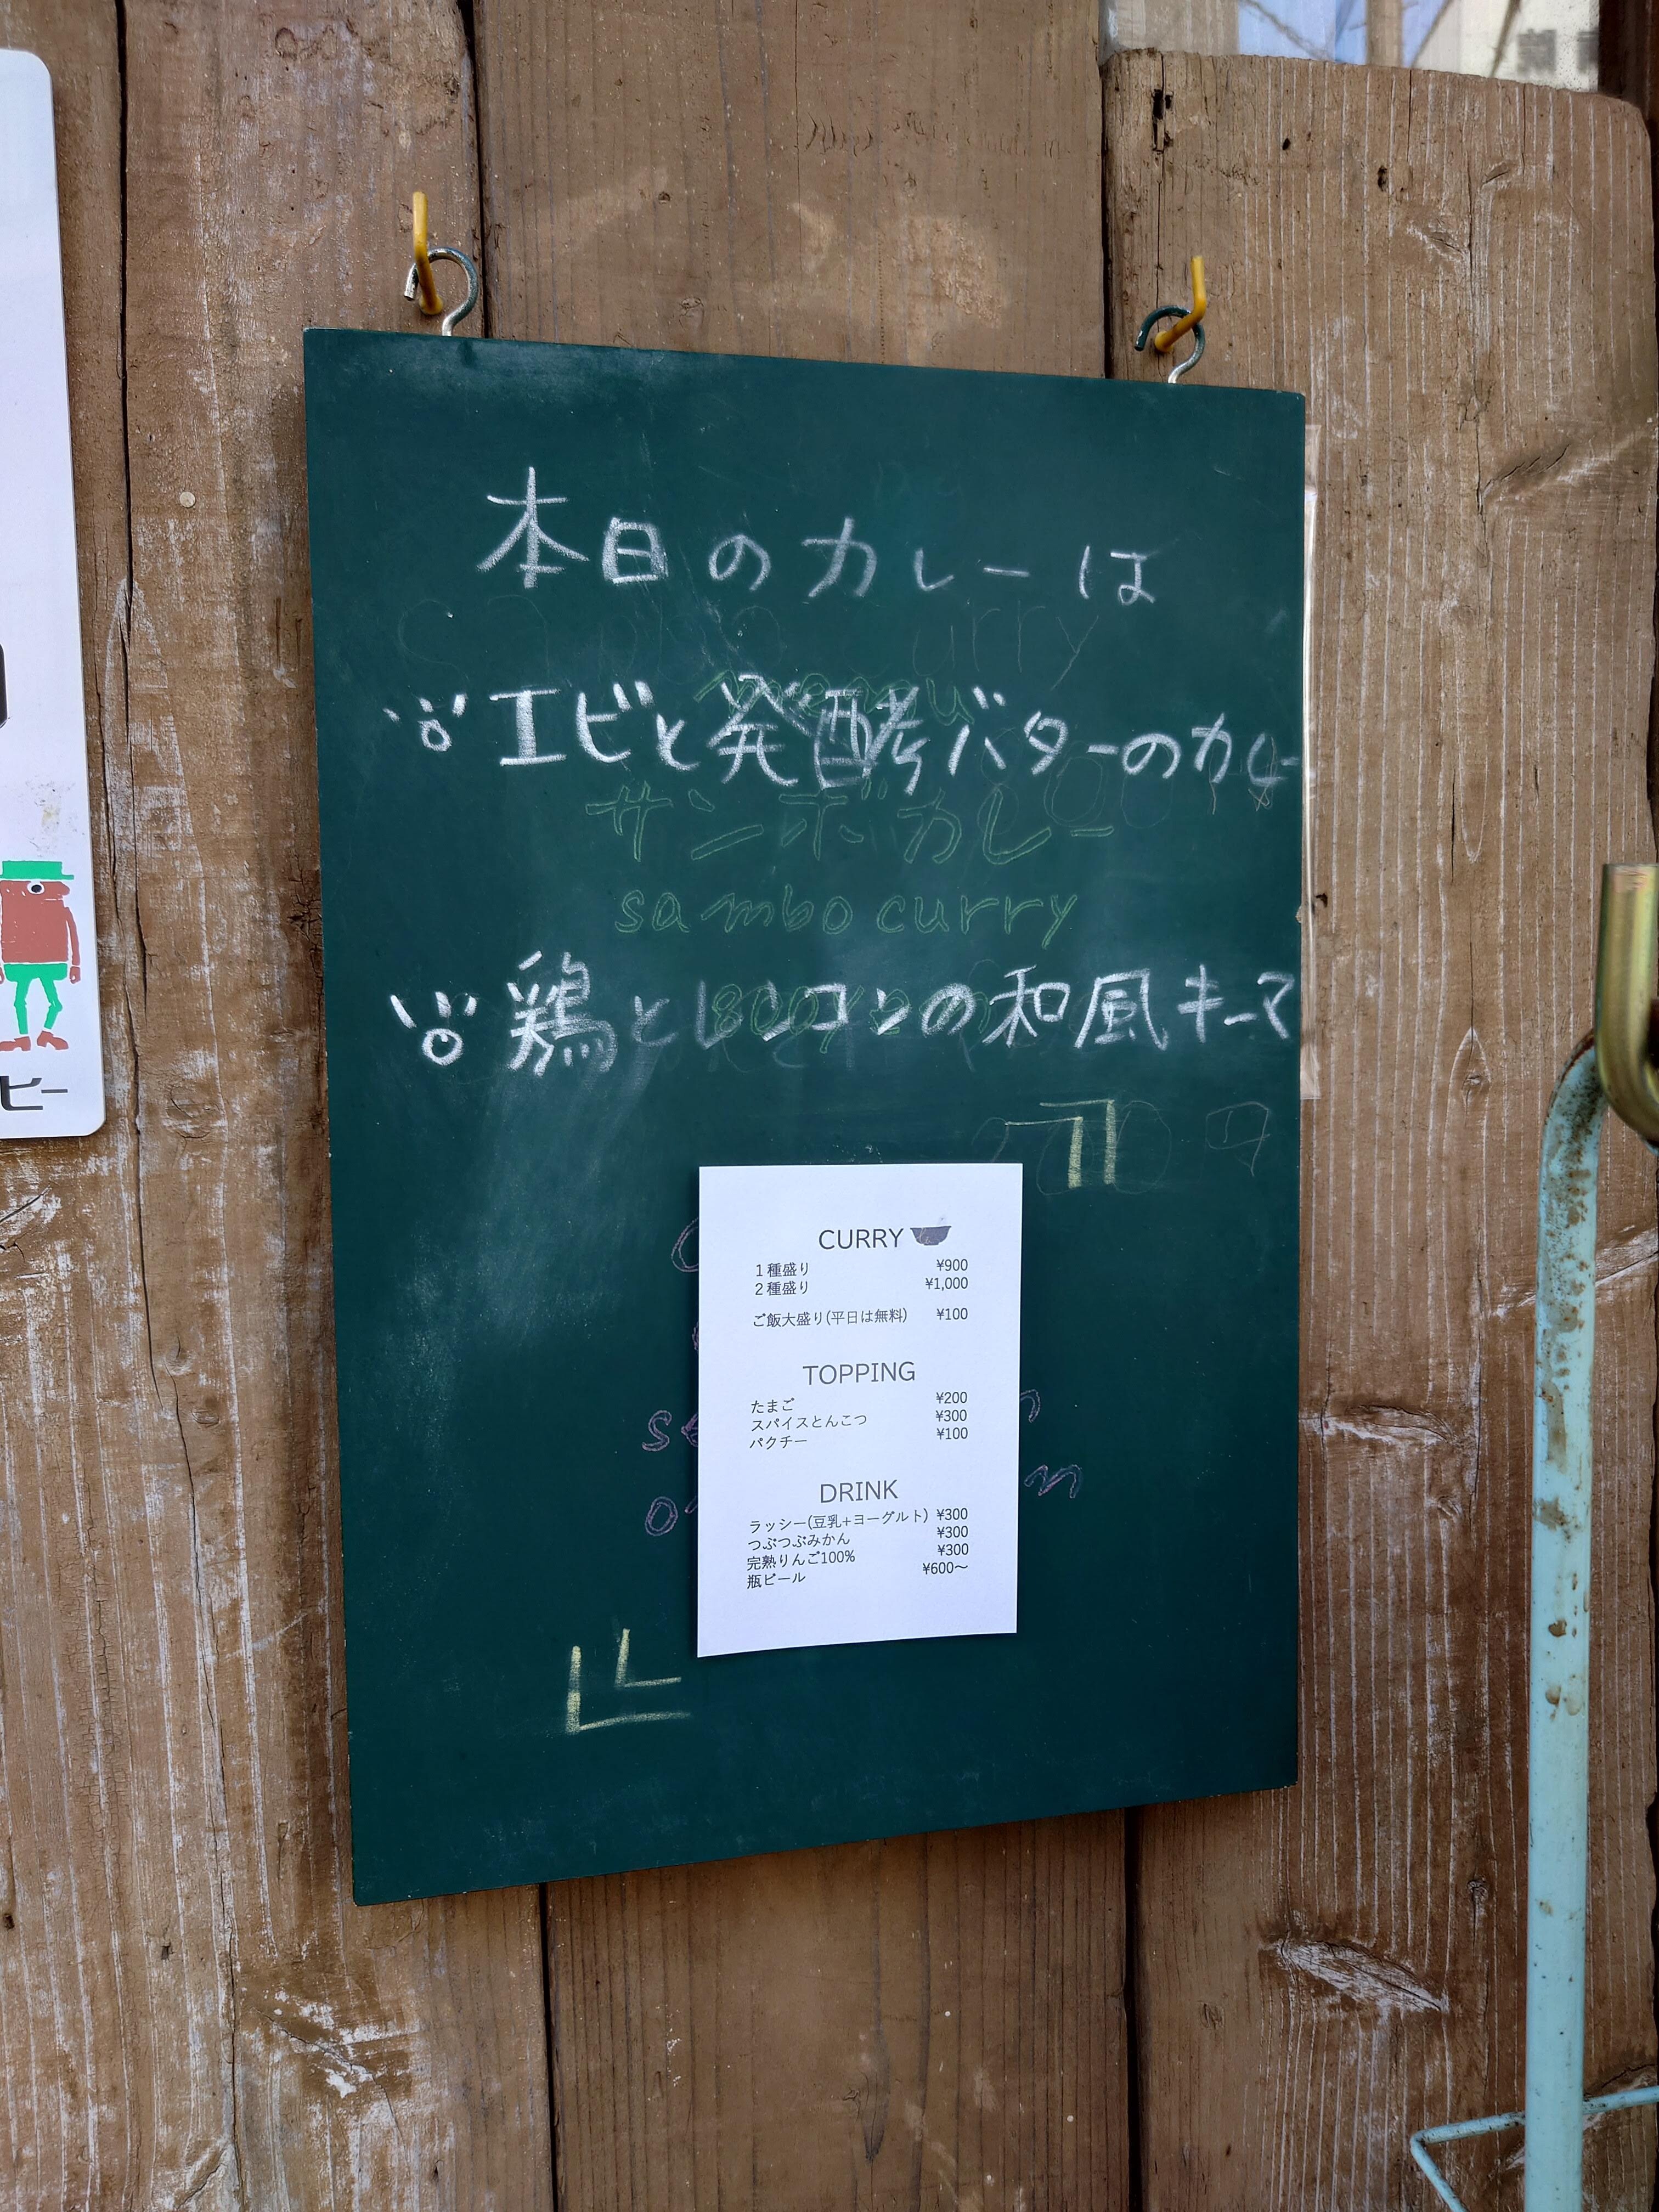 本日のカレーは
エビと発酵バターのカレー
サンボカレー
sambo curry
鶏とレンコンの和風キーマ
CURRY
1種盛り ¥900
2種盛り ¥1,000
ご飯大盛り(平日は無料) ¥100
TOPPING
たまご ¥200
スパイスとんこつ ¥300
パクチー ¥100
DRINK
ラッシー(豆乳+ヨーグルト) ¥300
つぶつぶみかん ¥300
完熟りんご100% ¥300
瓶ビール ¥600〜
ビー